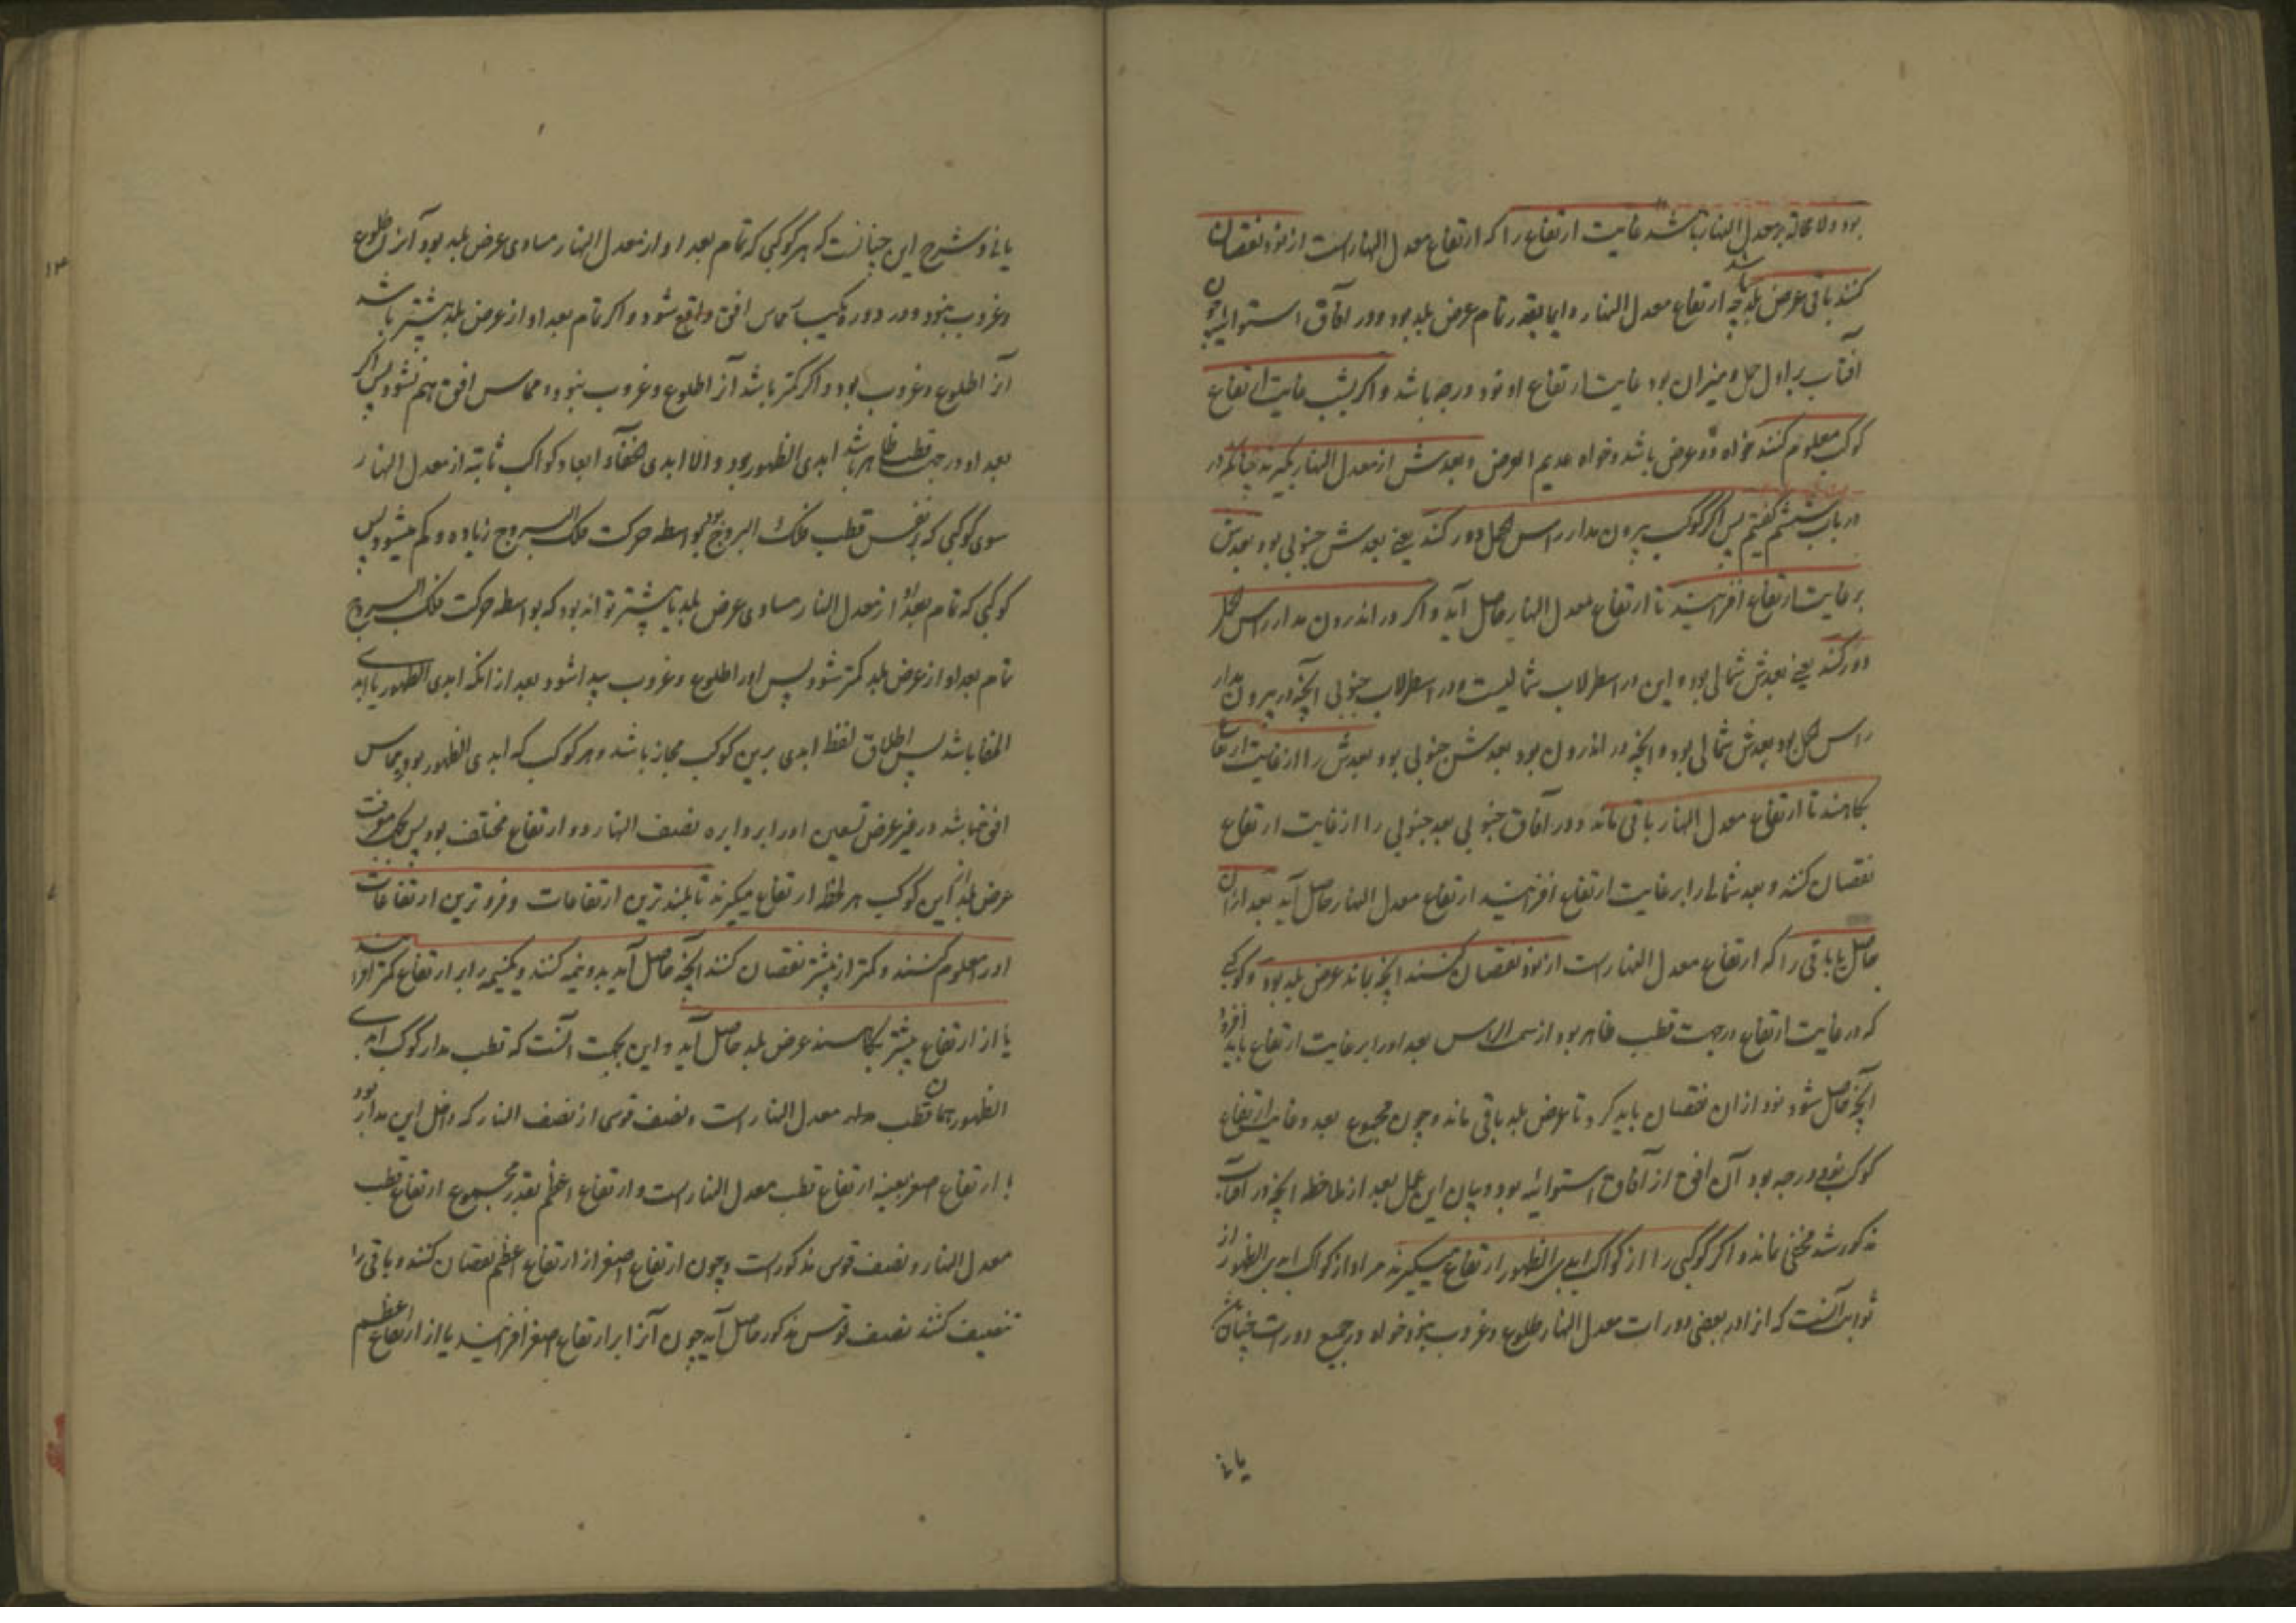 بود ولا محاله بر معدل النهار باشد غایت ارتفاع را که ارتفاع معدل النهار است از نود نقصان
کنند باقی عرض بلد باشد چه ارتفاع معدل النهار دایما بقدر تمام عرض بلد بود و در آفاق استوائیه چون
آفتاب بر اول حمل و میزان بود غایت ارتفاع او نود درجه باشد و اگر بشب غایت ارتفاع
کوکب معلوم کنند خواه ذو عرض باشد و خواه عدیم العرض و بعدش از معدل النهار بگیرند چنانکه در
در باب ششم گفتیم پس اگر کوکب بیرون مدار راس الحمل دور کند یعنی بعدش جنوبی بود بعدش
بر غایت ارتفاع افزایند تا ارتفاع معدل النهار حاصل آید و اگر در اندرون مدار راس الحمل
دور کند یعنی بعدش شمالی بود و این در اسطرلاب شمالیست و در اسطرلاب جنوبی آنچه در بیرون مدار
راس الحمل بود بعدش شمالی بود و آنچه در اندرون بود بعدش جنوبی بود بعدش را از غایت ارتفاع
بکاهند تا ارتفاع معدل النهار باقی ماند و در آفاق جنوبی بعد جنوبی را از غایت ارتفاع
نقصان کنند و بعد شمالی را بر غایت ارتفاع افزایند ارتفاع معدل النهار حاصل آید بعد از آن
حاصل یا باقی را که ارتفاع معدل النهار است از نود نقصان کنند آنچه بماند عرض بلد بود و کوکبی
که در غایت ارتفاع در جهت قطب ظاهر بود از سمت الراس بعد او را بر غایت ارتفاع باید افزود
آنچه حاصل شود نود از ان نقصان باید کرد تا عرض بلد باقی ماند و چون مجموع بعد و غایت ارتفاع
کوکب نود درجه بود آن افق از آفاق استوائیه بود و بیان این عمل بعد از ملاحظه آنچه در آفتاب
مذکور شد مخفی نماند و اگر کوکبی را از کواکب ابدی الظهور ارتفاع میگیرند مراد از کواکب ابدی الظهور از
ثوابت آنست که از او در بعضی دورات معدل النهار طلوع و غروب نبود خواه در جمیع دورات چنان باشد
یا نی
یا نی و شرح این چنانست که هر کوکبی که تمام بعد او از معدل النهار مساوی عرض بلد بود آنرا طلوع
و غروب نبود و در دوره یکبار مماس افق واقع شود و اگر تمام بعد او از عرض بلد بیشتر باشد
آنرا طلوع و غروب بود و اگر کمتر باشد آنرا طلوع و غروب نبود و مماس افق هم نشود پس اگر
بعد او در جهت قطب ظاهر باشد ابدی الظهور بود و الا ابدی الخفا و ابعاد کواکب ثابته از معدل النهار
سوی کوکبی که بر نفس قطب فلک البروج بود بواسطه حرکت فلک البروج زیاده و کم میشود پس
کوکبی که تمام بعد او از معدل النهار مساوی عرض بلد یا بیشتر تواند بود که بواسطه حرکت فلک البروج
تمام بعد او از عرض بلد کمتر شود پس او را طلوع و غروب پیدا شود بعد از انکه ابدی الظهور یا ابدی
الخفا باشد پس اطلاق لفظ ابدی برین کوکب مجاز باشد و هر کوکب که ابدی الظهور بود و مماس
افق نباشد در غیر عرض تسعین او را بر دایره نصف النهار دو ارتفاع مختلف بود پس بجهت معرفت
عرض بلد از این کوکب هر لحظه ارتفاع میگیرند تا بلند ترین ارتفاعات و فروترین ارتفاعات
او را معلوم کنند و کمتر از بیشتر نقصان کنند آنچه حاصل آید بدو نیمه کنند و یکنیمه را بر ارتفاع کمتر افزایند
یا از ارتفاع بیشتر بکاهند عرض بلد حاصل آید و این بجهت آنست که قطب مدار کوکب ابدی
الظهور همان قطب معدل النهار است و نصف قوسی از نصف النهار که داخل این مدار بود
با ارتفاع اصغر بعینه ارتفاع قطب معدل النهار است و ارتفاع اعظم بقدر مجموع ارتفاع قطب
معدل النهار و نصف قوس مذکور است و چون ارتفاع اصغر از ارتفاع اعظم نقصان کنند و باقی را
تنصیف کنند نصف قوس مذکور حاصل آید چون آنرا بر ارتفاع اصغر افزایند یا از ارتفاع اعظم